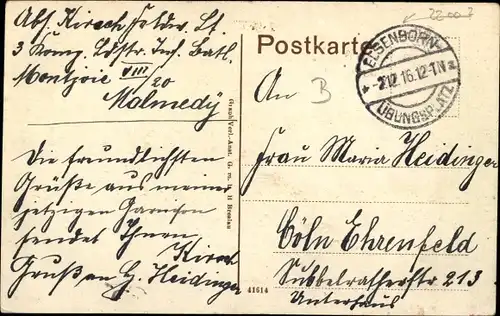 Abs. Kirsch Feldw. Lt.
3 Komp. Ldstr. Inf. Batl.
Montjoie VIII
20
Malmedÿ
Die freundlichsten
Grüße aus meiner
jetzigen Garnison
sendet Ihnen
Kirsch
Gruß an H. Heidinger
Graph. Verl.-Anst. G. m. b. H. Breslau
41614
Postkarte
ELSENBORN
-2.12.16.12-1N
ÜBUNGSPLATZ
An
B
Frau Maria Heidinger
Cöln Ehrenfeld
Subbelratherstr 213
Unterhaus